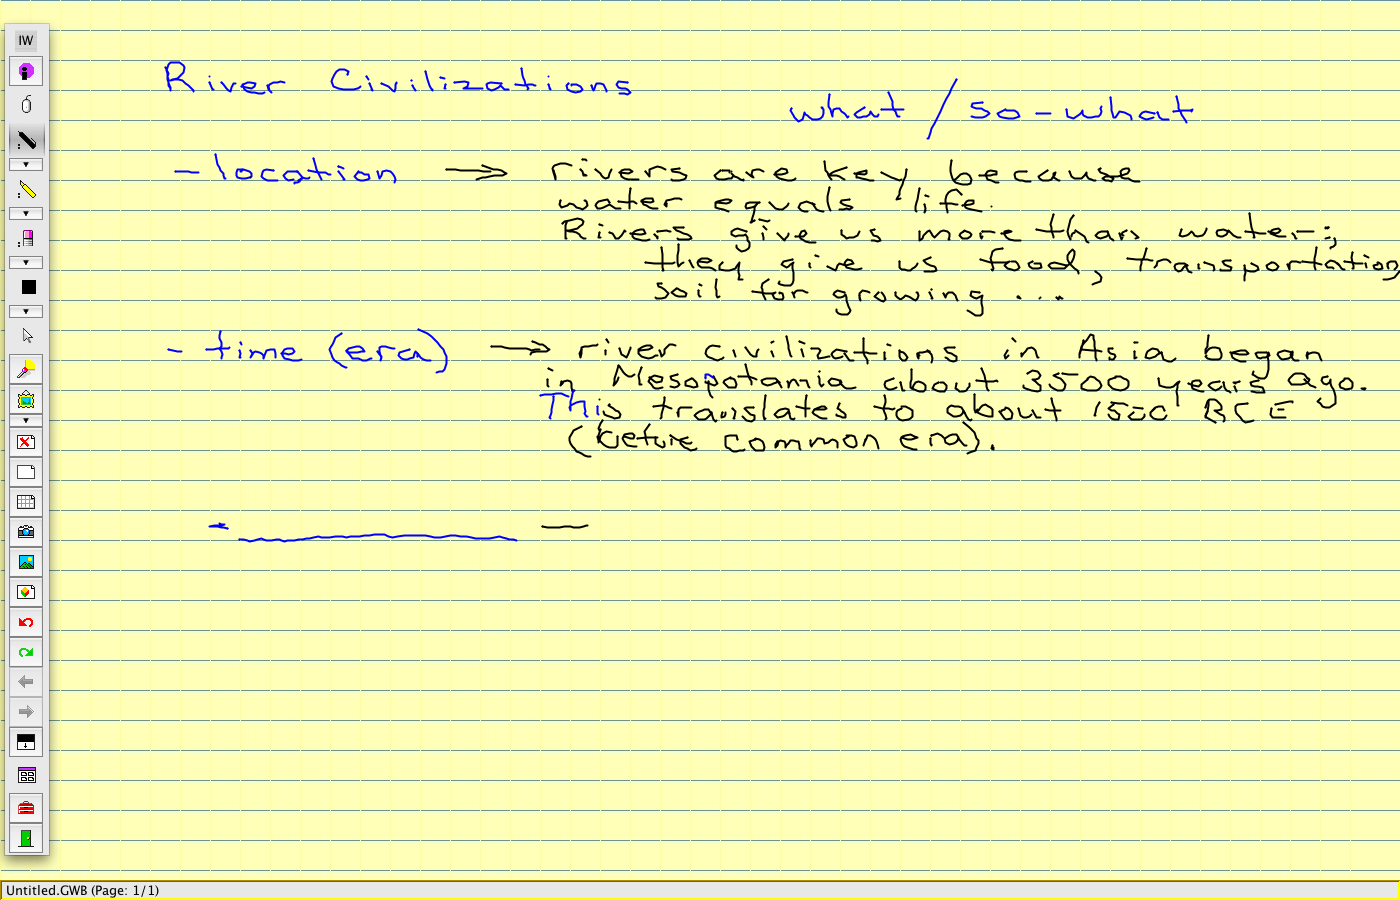 IW
River Civilizations
what / so-what
- location → rivers are key because
water equals life.
Rivers give us more than water;
they give us food, transportation,
soil for growing ...
- time (era) → river civilizations in Asia began
in Mesopotamia about 3500 years ago.
This translates to about 1500 BCE
(before common era).
Untitled.GWB (Page: 1/1)